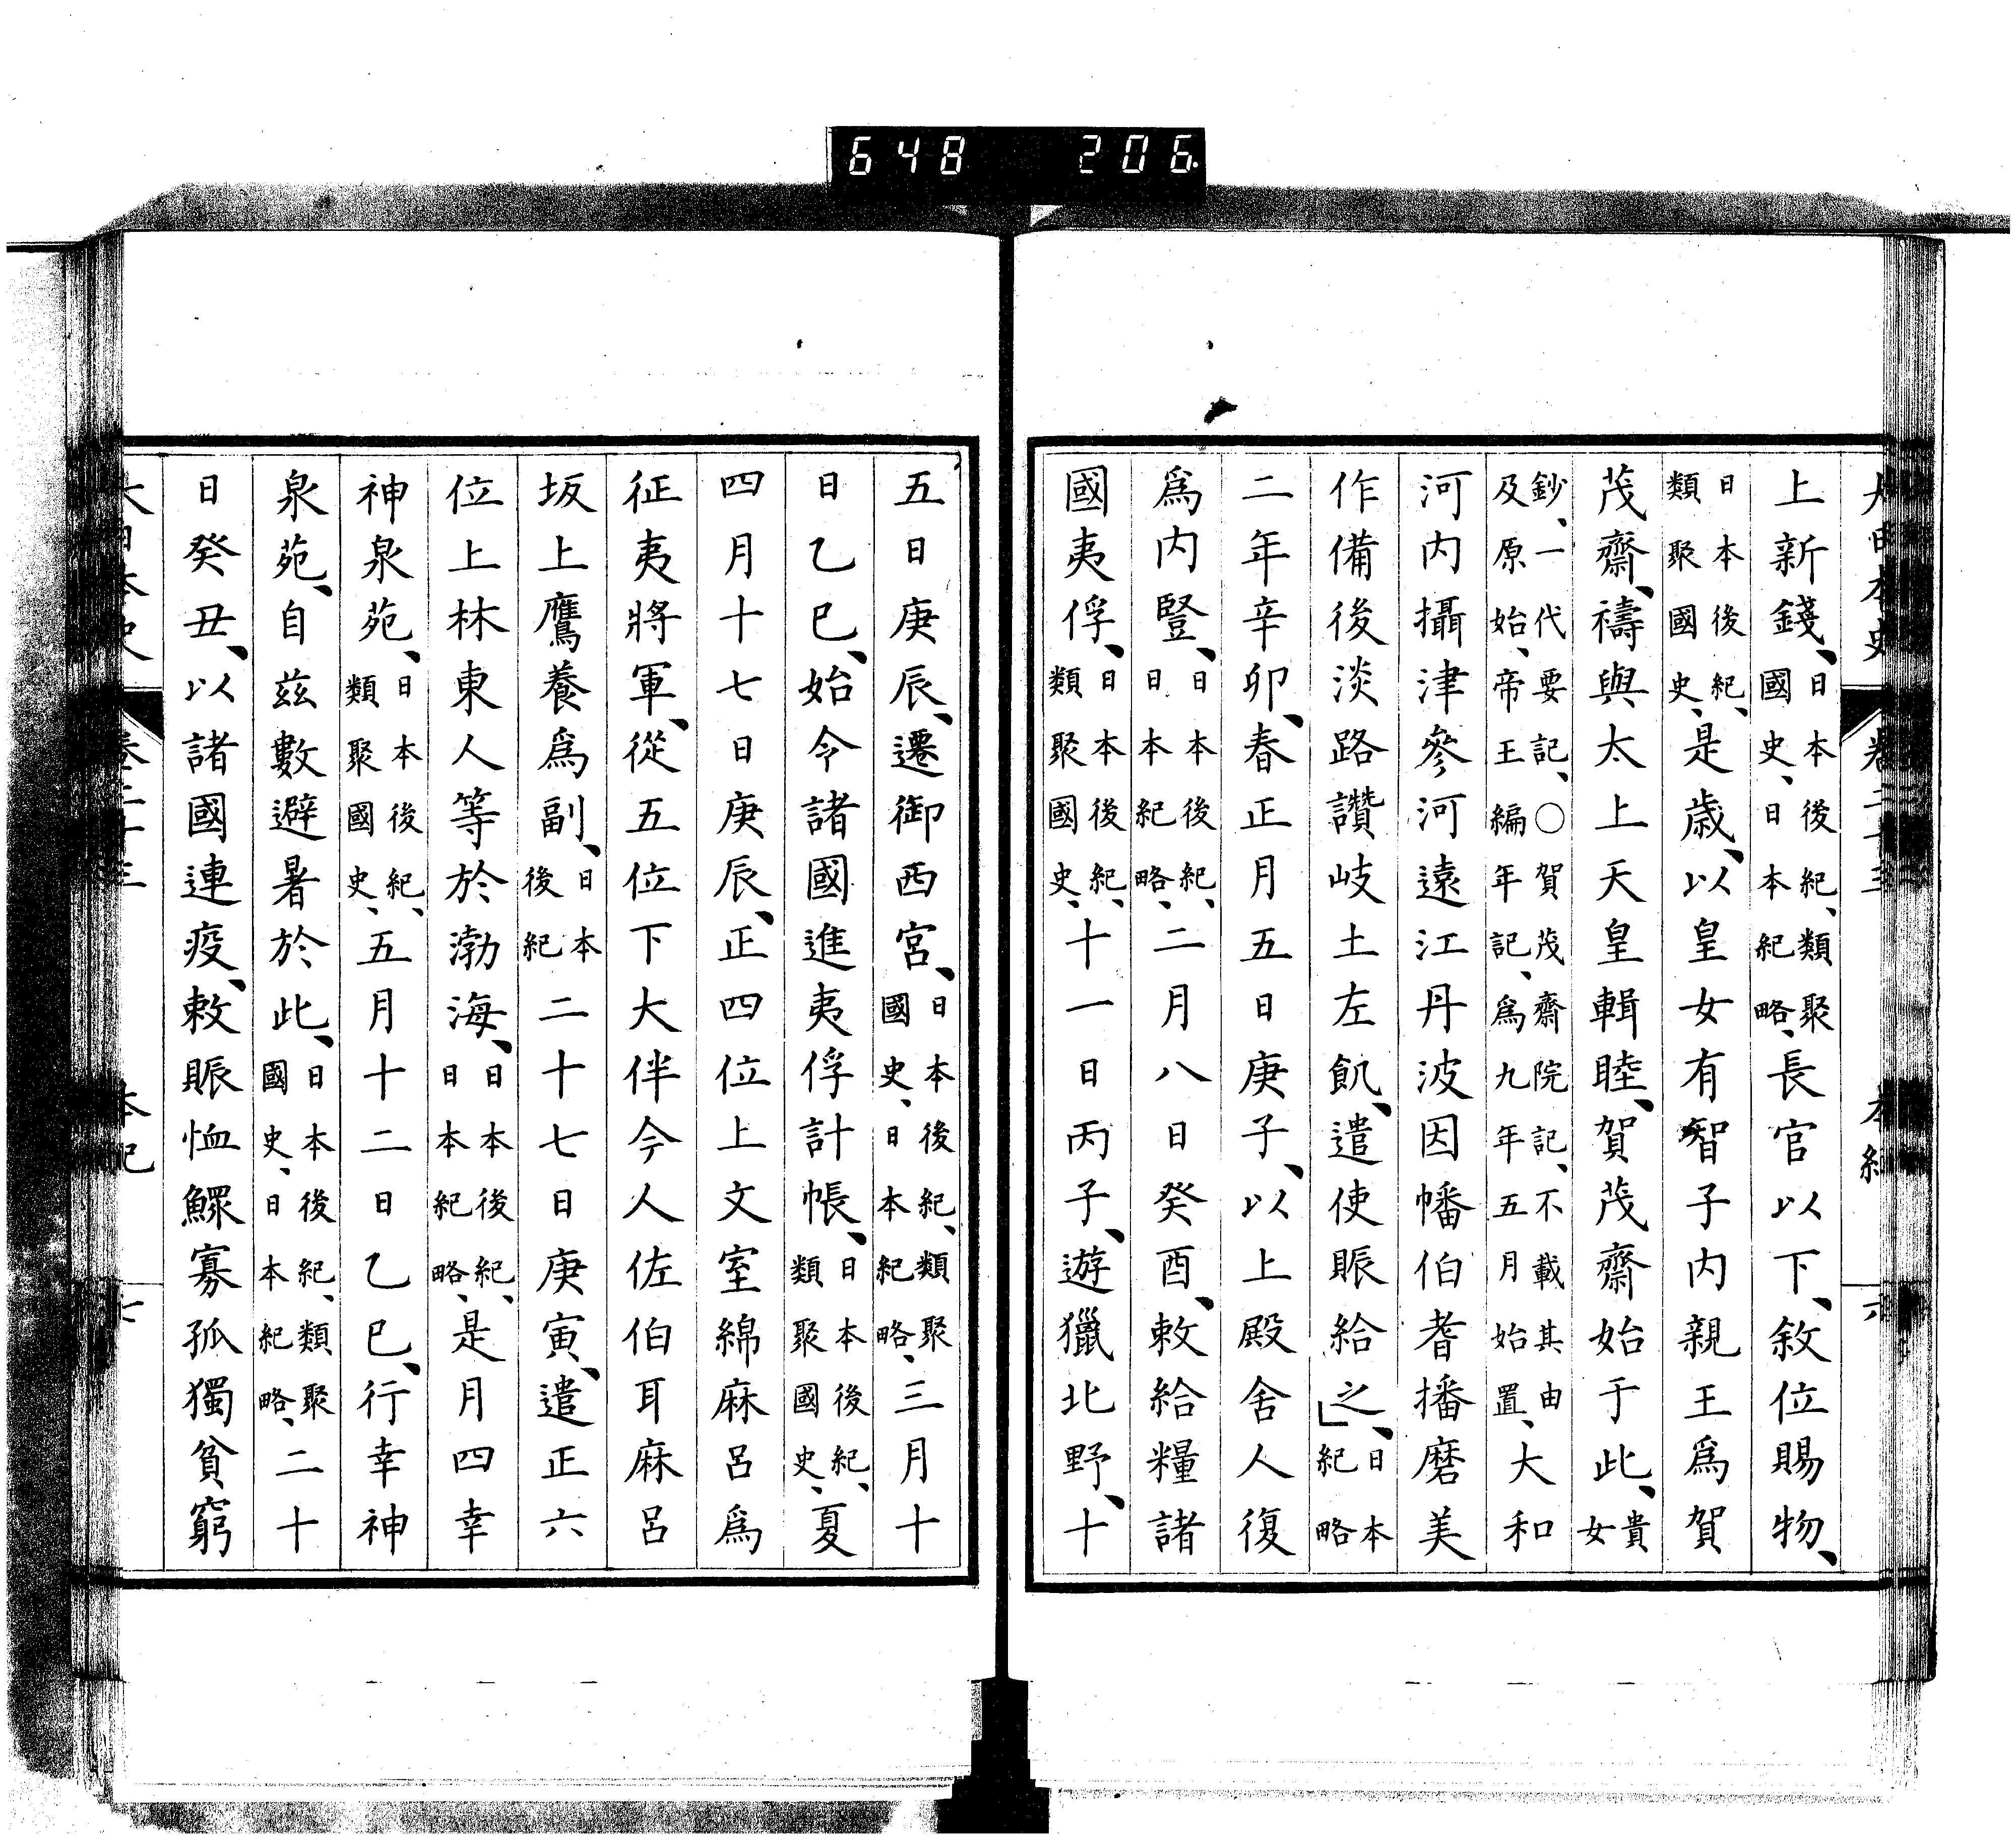 648 206
大日本史 卷二十三 本紀 六
上新錢、日本後紀、類聚國史、日本紀略、長官以下、敘位賜物、
日本後紀、類聚國史、是歲、以皇女有智子內親王爲賀
茂齋、禱與太上天皇輯睦、賀茂齋始于此、貴女
鈔、一代要記、○賀茂齋院記、不載其由及原始、帝王編年記、爲九年五月始置、大和
河內攝津參河遠江丹波因幡伯耆播磨美
作備後淡路讚岐土左飢、遣使賑給之、日本紀略
二年辛卯、春正月五日庚子、以上殿舍人復
爲內豎、日本後紀、日本紀略、二月八日癸酉、敕給糧諸
國夷俘、日本後紀、類聚國史、十一日丙子、遊獵北野、十
五日庚辰、遷御西宮、日本後紀、類聚國史、日本紀略、三月十
日乙巳、始令諸國進夷俘計帳、日本後紀、類聚國史、夏
四月十七日庚辰、正四位上文室綿麻呂爲
征夷將軍、從五位下大伴今人佐伯耳麻呂
坂上鷹養爲副、日本後紀二十七日庚寅、遣正六
位上林東人等於渤海、日本後紀、日本紀略、是月四幸
神泉苑、日本後紀、類聚國史、五月十二日乙巳、行幸神
泉苑、自茲數避暑於此、日本後紀、類聚國史、日本紀略、二十
日癸丑、以諸國連疫、敕賑恤鰥寡孤獨貧窮
大日本史 卷二十三 本紀 七